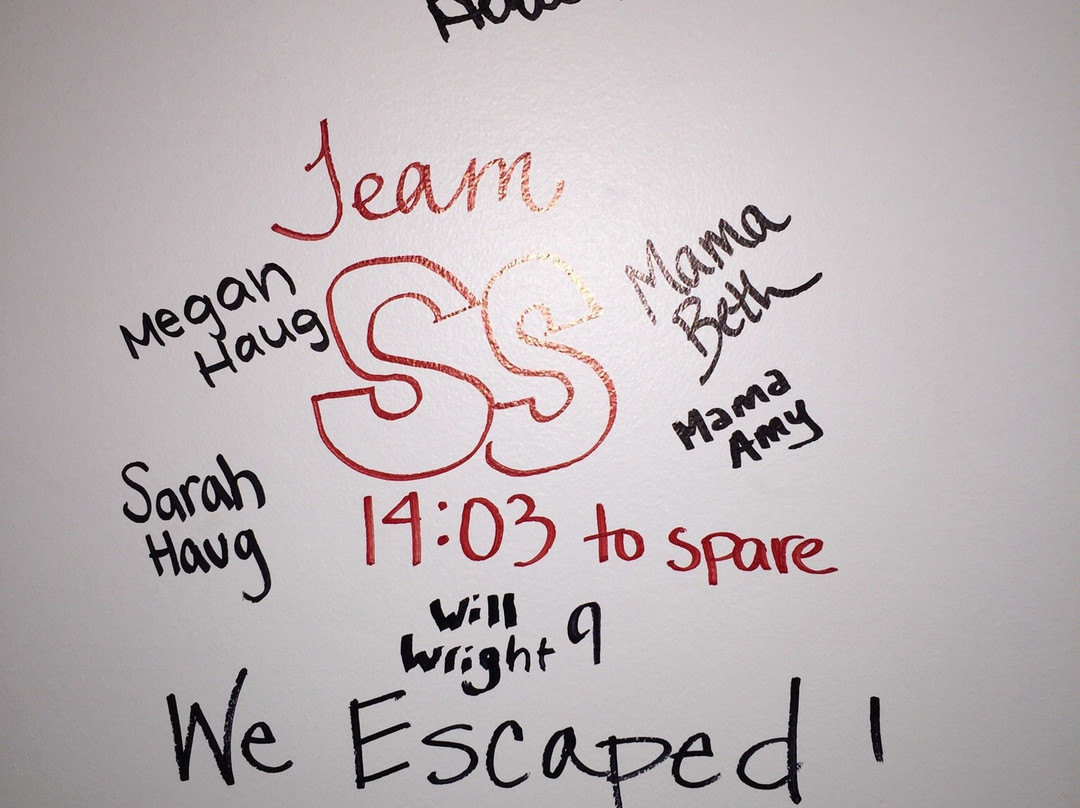 Team
SS
Megan
Haug
Mama
Beth
Mama
Amy
Sarah
Haug
14:03 to spare
Will
Wright 9
We Escaped !